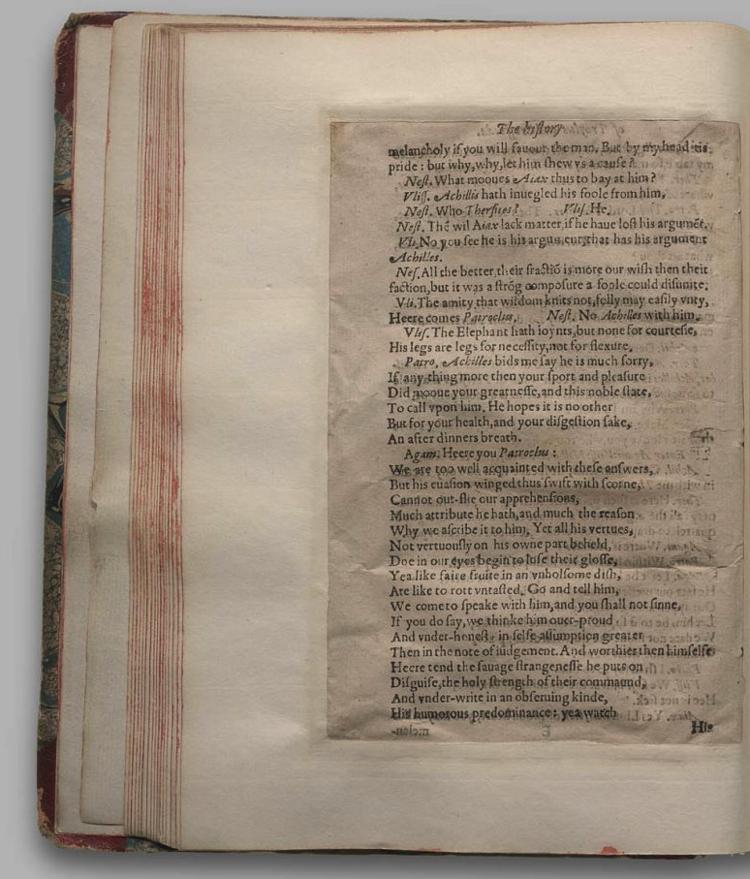 The history
melancholy if you will fauour the man, But by my head tis
pride : but why,why,let him shew vs a cause ?
Nest. What mooues Aiax thus to bay at him ?
Vliss. Achillis hath inuegled his foole from him,
Nest. Who Thersites ? Vlis. He.
Nest. Thē wil Aiax lack matter,if he haue lost his argumēt.
Vli. No you see he is his argument,that has his argument
Achilles.
Nes. All the better,their fractiō is more our wish then their
faction,but it was a strōg composure a foole could disunite;
Vli. The amity that wisdom knits not,folly may easily vnty,
Heere comes Patroclus, Nest. No Achilles with him.
Vlis. The Elephant hath ioynts,but none for courtesie,
His legs are legs for necessity,not for flexure,
Patro, Achilles bids me say he is much sorry,
If any thing more then your sport and pleasure
Did mooue your greatnesse,and this noble state,
To call vpon him, He hopes it is no other
But for your health,and your disgestion sake,
An after dinners breath.
Agam. Heere you Patroclus :
We are too well acquainted with these answers,
But his euasion winged thus swift with scorne,
Cannot out-flie our apprehensions,
Much attribute he hath,and much the reason
Why we ascribe it to him, Yet all his vertues,
Not vertuously on his owne part beheld,
Doe in our eyes begin to lose their glosse,
Yea like faire fruite in an vnholsome dish,
Are like to rott vntasted, Go and tell him,
We come to speake with him,and you shall not sinne,
If you do say,we thinke him ouer-proud
And vnder-honest, in selfe assumption greater
Then in the note of iudgement. And worthier then himselfe
Heere tend the sauage strangenesse he puts on
Disguise,the holy strength of their commaund,
And vnder-write in an obseruing kinde,
His humorous predominance : yea watch
His